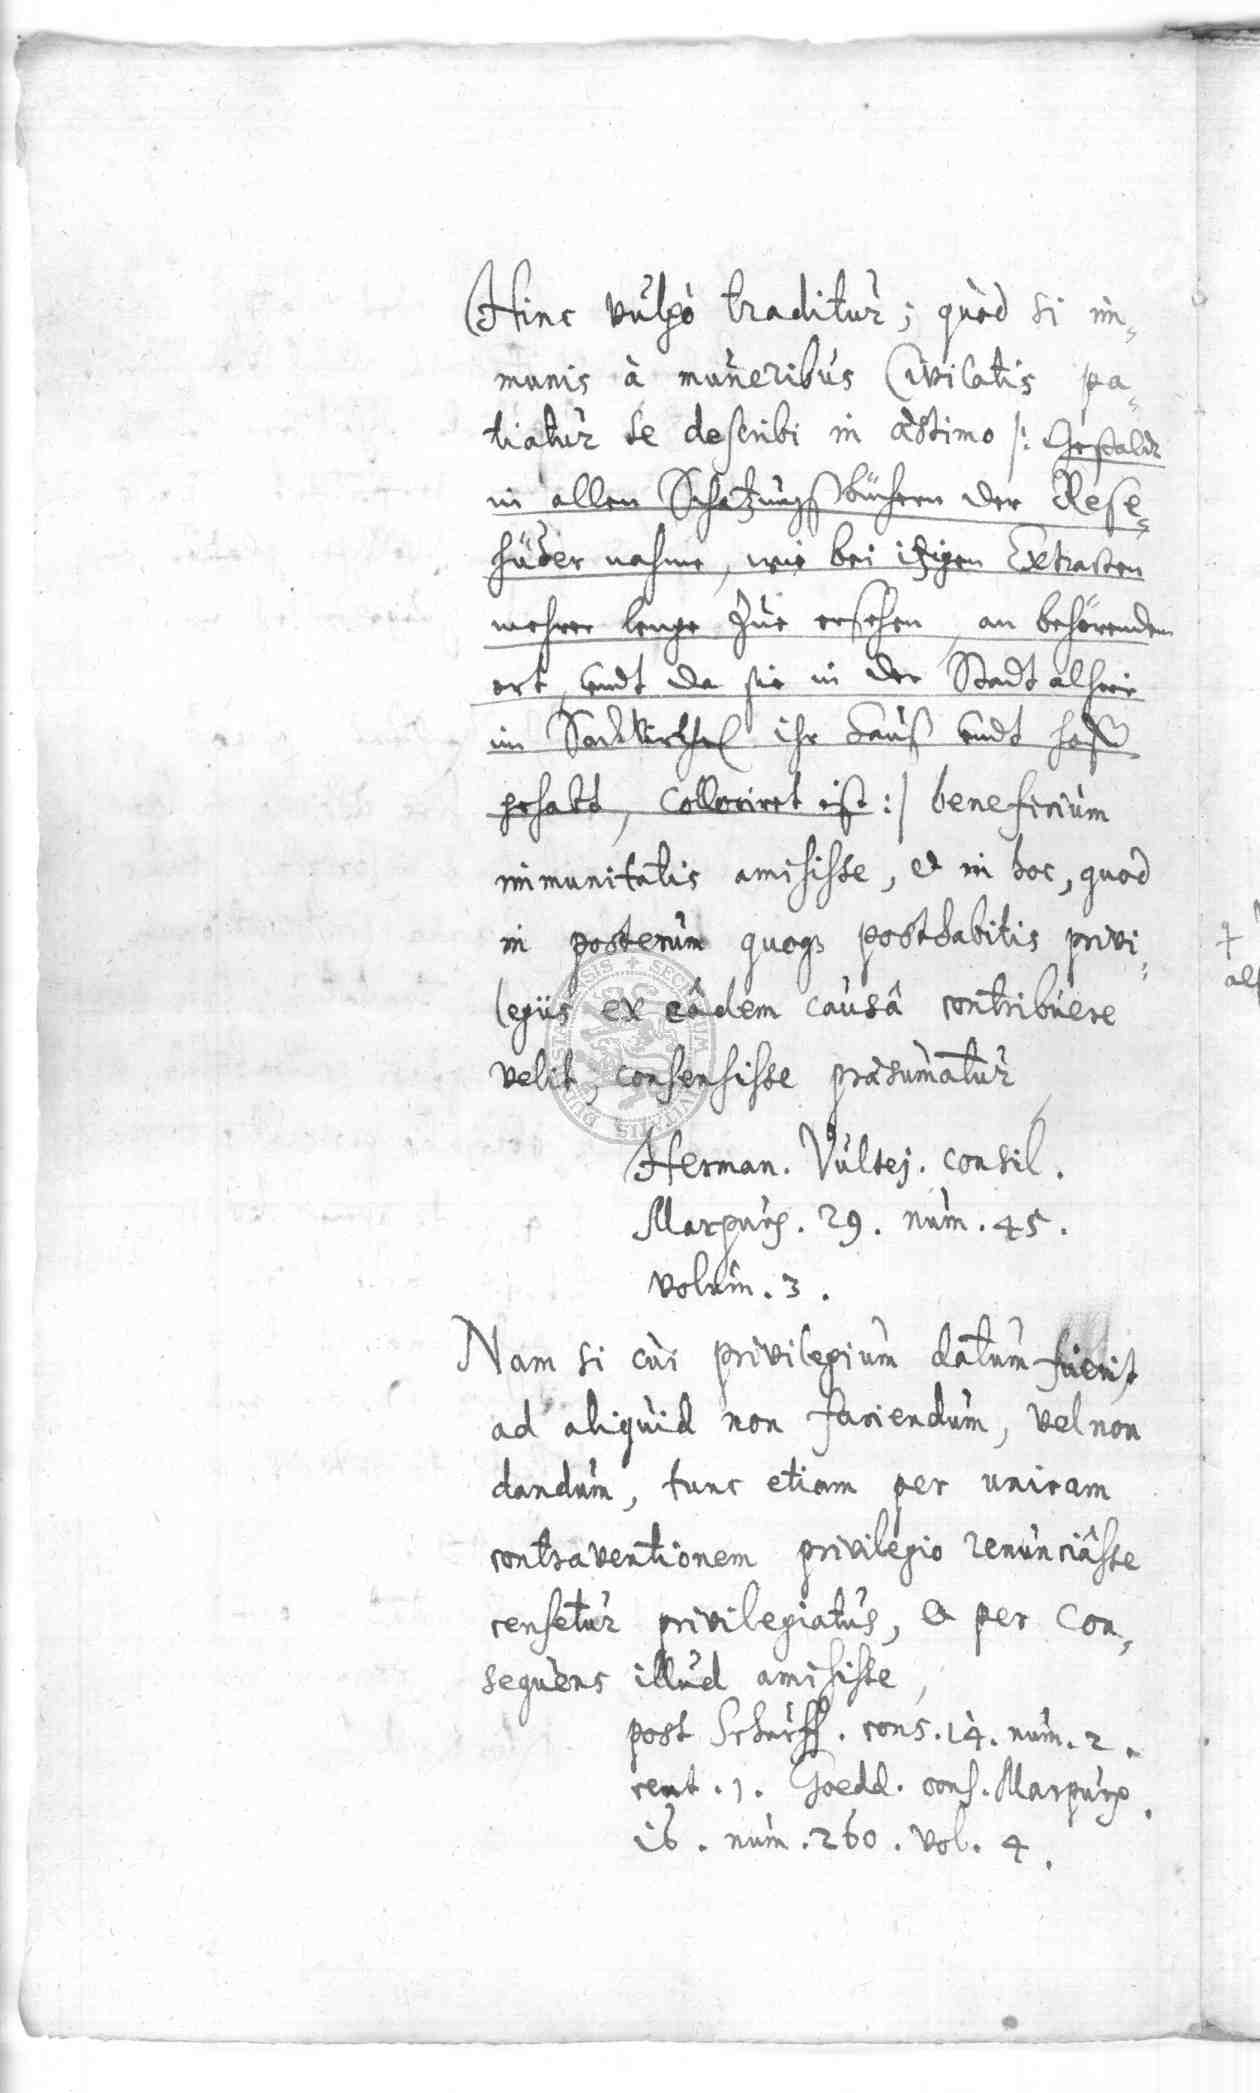 Hinc vulgò traditur; quòd si im-
munis à muneribus Civitatis pa-
tiatur se describi in æstimo /: Gestalt
in allen Schatzungßbüchern der Rese-
nahme, wie bei itzigen Extracten
mehrer lenge zue ersehen, an behörenden
ort, undt da sie in der Stadt alhier
im ihr Hauß undt hoff
gehabt, collociret ist :/ beneficium
immunitatis amisisse, et in hoc, quod
in posterum quoq3 posthabitis privi-
legiis ex eâdem causâ contribuere
velit, consensisse præsumatur
Herman. Vultej. consil.
Marpurg. 29. num. 45.
volum. 3.
Nam si cui privilegium datum fuerit
ad aliquid non faciendum, vel non
dandum, tunc etiam per unicam
contraventionem privilegio renunciâsse
censetur privilegiatus, et per con-
sequens illud amisisse,
post Schurff. cons. 14. num. 2.
cent. 1. Goedd. cons. Marpurg.
16. num. 260. vol. 4.